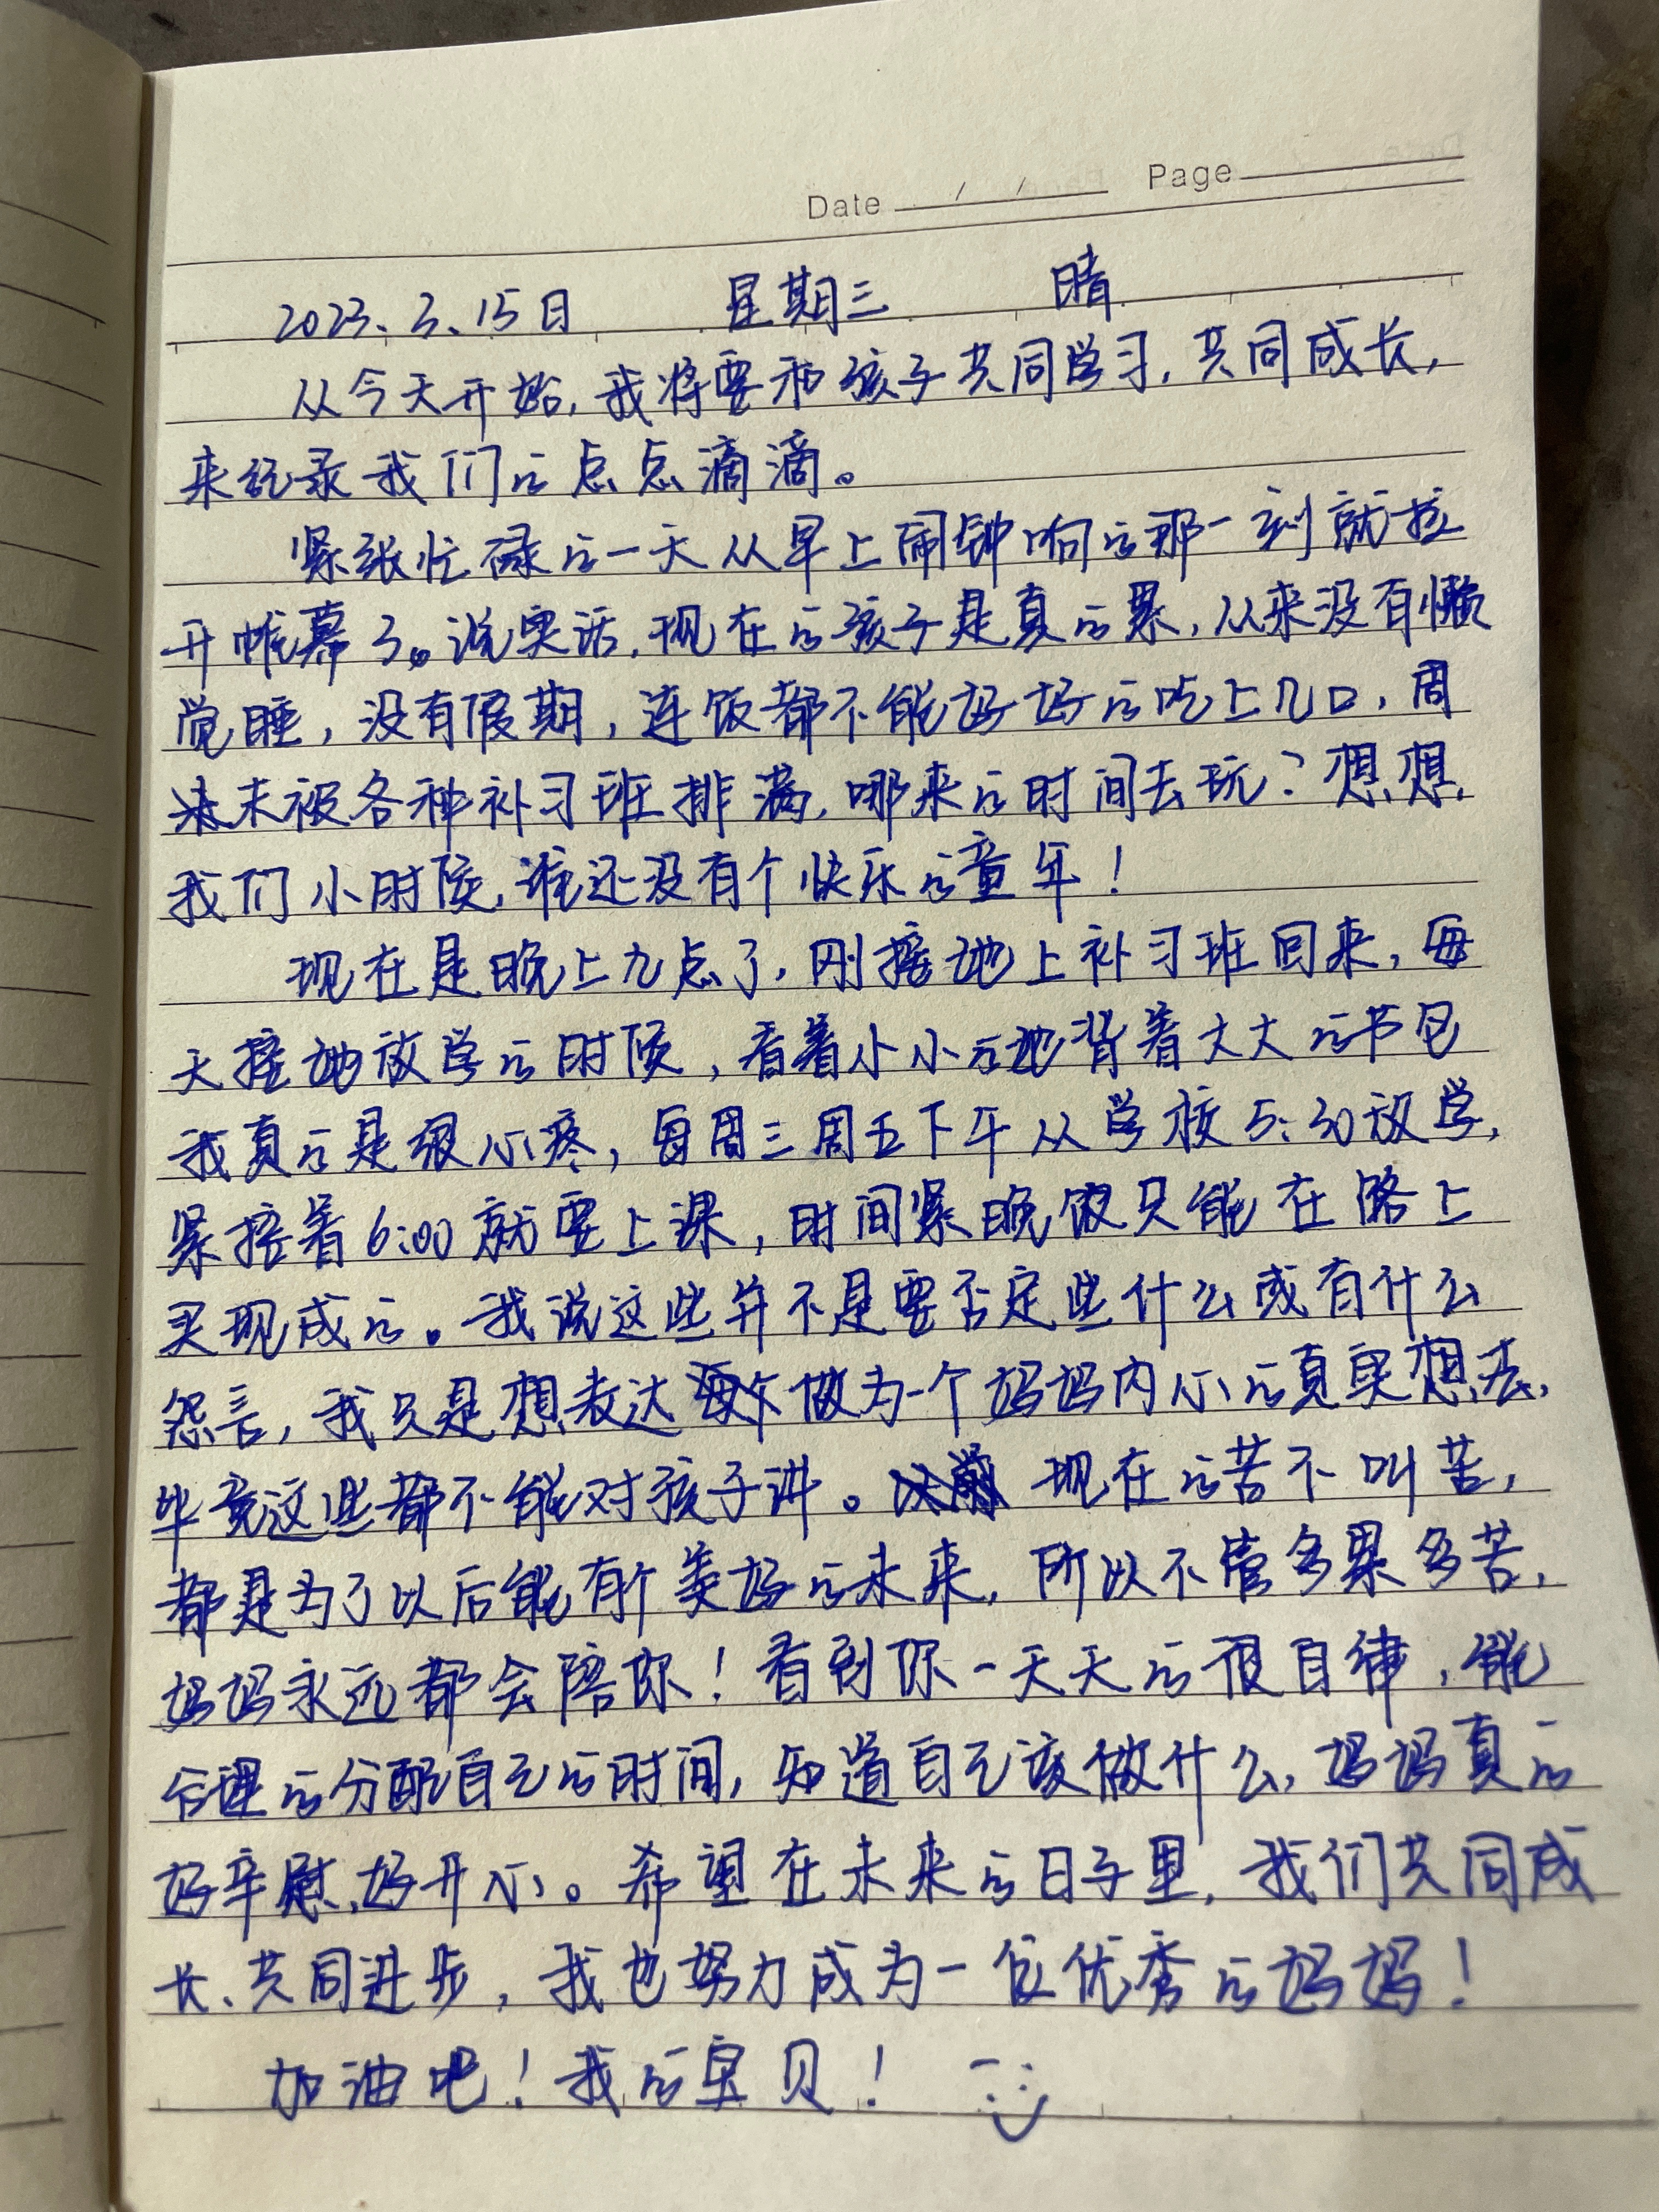 Date / / Page
2023、3、15日 星期三 晴
从今天开始，我将要和孩子共同学习，共同成长，
来记录我们的点点滴滴。
紧张忙碌的一天从早上闹钟响的那一刻就拉
开帷幕了。说实话，现在的孩子是真的累，从来没有懒
觉睡，没有假期，连饭都不能好好的吃上几口，周
末被各种补习班排满，哪来的时间去玩？想想
我们小时候，谁还没有个快乐的童年！
现在是晚上九点了，刚接她上补习班回来，每
天接她放学的时候，看着小小的她背着大大的书包
我真的是很心疼，每周三周五下午从学校5:30放学，
紧接着6:00就要上课，时间紧晚饭只能在路上
买现成的。我说这些并不是要否定些什么或有什么
怨言，我只是想表达做为一个妈妈内心的真实想法，
毕竟这些都不能对孩子讲。现在的苦不叫苦，
都是为了以后能有个美好的未来，所以不管多累多苦，
妈妈永远都会陪你！看到你一天天的很自律，能
合理的分配自己的时间，知道自己该做什么，妈妈真的
好辛慰，好开心。希望在未来的日子里，我们共同成
长、共同进步，我也努力成为一位优秀的妈妈！
加油吧！我的宝贝！